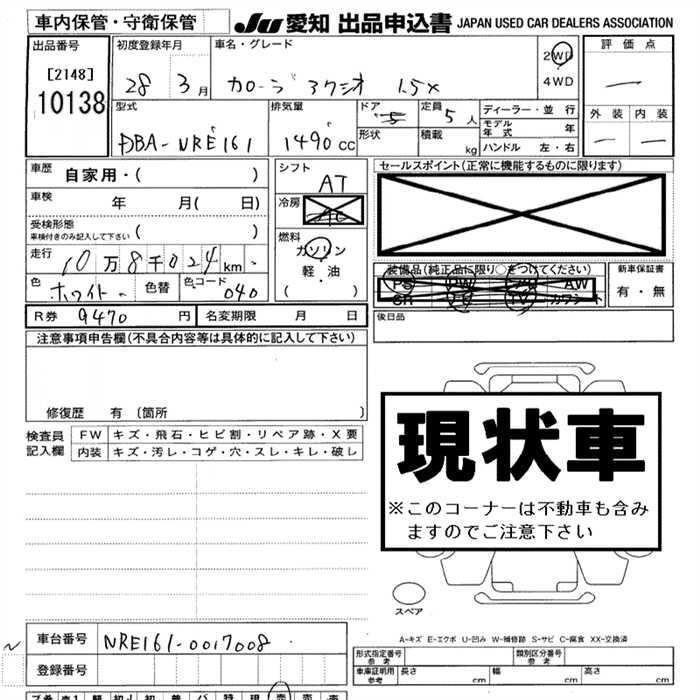 車内保管・守衛保管
JU 愛知 出品申込書 JAPAN USED CAR DEALERS ASSOCIATION
出品番号 [2148] 10138
初度登録年月 28 年 3 月
車名・グレード カローラ アクシオ 1.5X
2WD
4WD
評価点 —
外装 — 内装 —
型式 DBA-NRE161
排気量 1490 cc
ドア 5
形状
定員 5 人
積載 kg
ディーラー・並行
モデル年式 年
ハンドル 左・右
車歴 自家用・( )
車検 年 月( 日)
受検形態
車検付きのみ記入して下さい ( )
走行 10万8千024 km
色 ホワイト 色替 色コード 040
シフト AT
冷房 AC
燃料 ガソリン
軽・油
( )
セールスポイント(正常に機能するものに限ります)
装備品(純正品に限り○をつけてください)
PS PW エアB AW
SR ナビ TV カワシート
新車保証書
有・無
後日品
R券 9470 円 名変期限 月 日
注意事項申告欄(不具合内容等は具体的に記入して下さい)
修復歴 有〔箇所 〕
検査員記入欄
FW キズ・飛石・ヒビ割・リペア跡・X要
内装 キズ・汚レ・コゲ・穴・スレ・キレ・破レ
現状車
※このコーナーは不動車も含み
ますのでご注意下さい
スペア
A-キズ E-エクボ U-凹み W-補修跡 S-サビ C-腐食 XX-交換済
車台番号 NRE161-0017008
登録番号
形式指定番号 参考
類別区分番号 参考
車庫証明用 参考 長さ cm 幅 cm 高さ cm